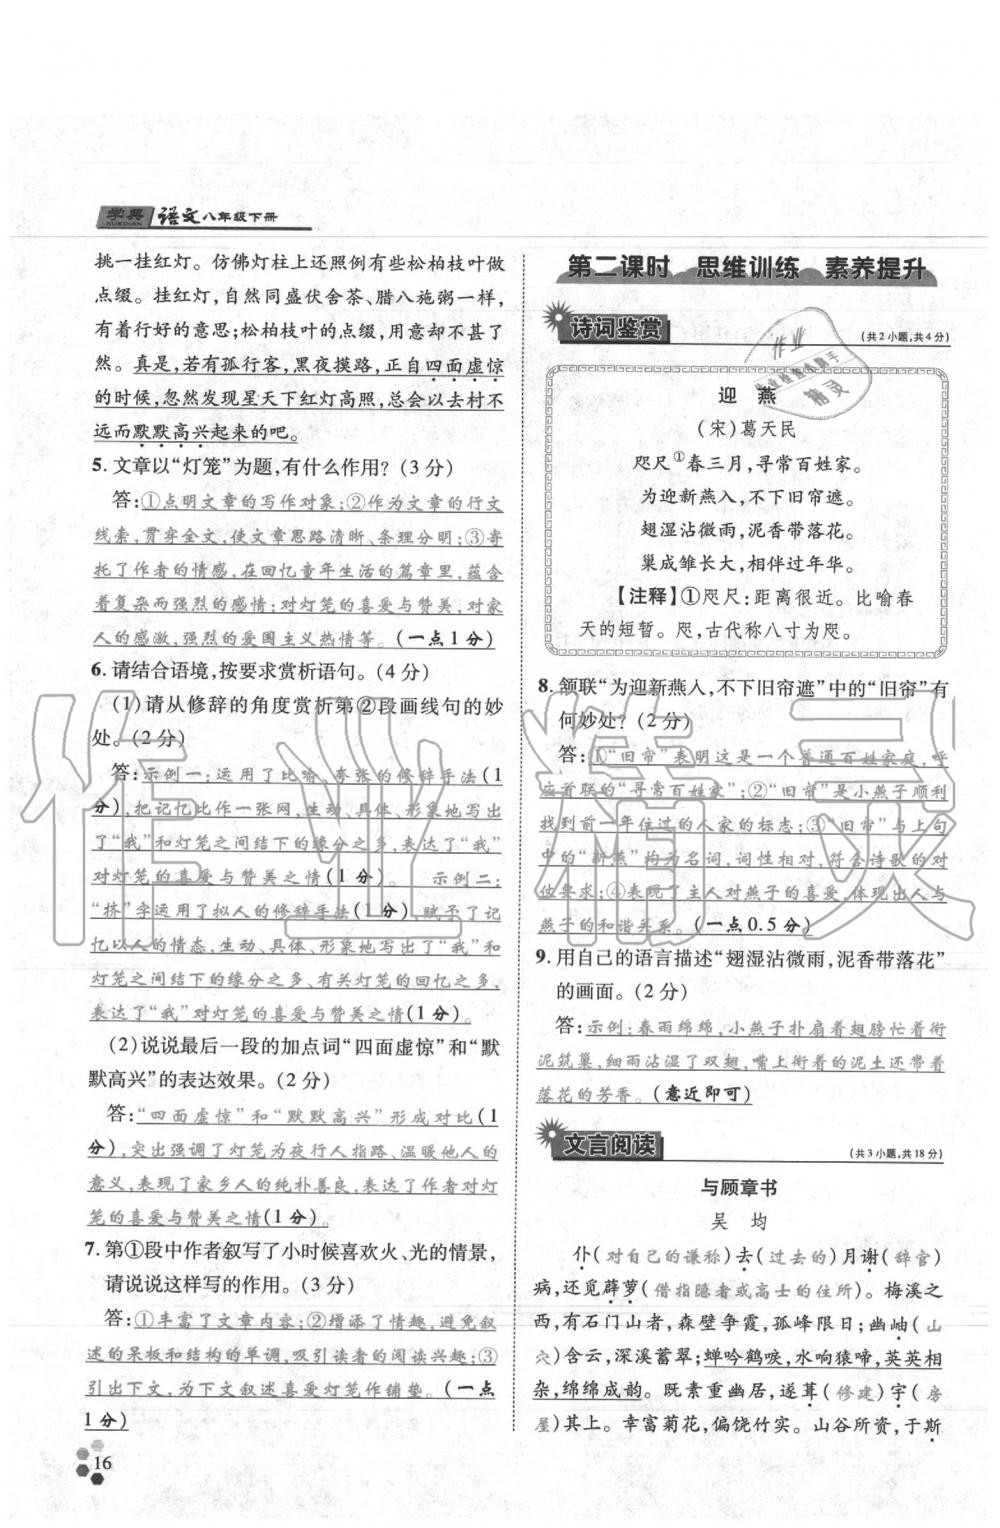 学典 XUEDIAN 语文八年级下册
挑一挂红灯。仿佛灯柱上还照例有些松柏枝叶做
点缀。挂红灯,自然同盛伏舍茶、腊八施粥一样,
有着行好的意思;松柏枝叶的点缀,用意却不甚了
然。真是,若有孤行客,黑夜摸路,正自四面虚惊
的时候,忽然发现星天下红灯高照,总会以去村不
远而默默高兴起来的吧。
5. 文章以“灯笼”为题,有什么作用?(3分)
答:①点明文章的写作对象;②作为文章的行文
线索,贯穿全文,使文章思路清晰、条理分明;③寄
托了作者的情感,在回忆童年生活的篇章里,蕴含
着复杂而强烈的感情:对灯笼的喜爱与赞美,对家
人的感激,强烈的爱国主义热情等。(一点1分)
6. 请结合语境,按要求赏析语句。(4分)
(1)请从修辞的角度赏析第②段画线句的妙
处。(2分)
答:示例一:运用了比喻、夸张的修辞手法(1
分),把记忆比作一张网,生动、具体、形象地写出
了“我”和灯笼之间结下的缘分之多,表达了“我”
对灯笼的喜爱与赞美之情(1分)。 示例二:
“挤”字运用了拟人的修辞手法(1分),赋予了记
忆以人的情态,生动、具体、形象地写出了“我”和
灯笼之间结下的缘分之多、有关灯笼的回忆之多,
表达了“我”对灯笼的喜爱与赞美之情(1分)。
(2)说说最后一段的加点词“四面虚惊”和“默
默高兴”的表达效果。(2分)
答:“四面虚惊”和“默默高兴”形成对比(1
分),突出强调了灯笼为夜行人指路、温暖他人的
意义,表现了家乡人的纯朴善良,表达了作者对灯
笼的喜爱与赞美之情(1分)。
7. 第①段中作者叙写了小时候喜欢火、光的情景,
请说说这样写的作用。(3分)
答:①丰富了文章内容;②增添了情趣,避免叙
述的呆板和结构的单调,吸引读者的阅读兴趣;③
引出下文,为下文叙述喜爱灯笼作铺垫。(一点
1分)
16
第二课时 思维训练 素养提升
诗词鉴赏 (共2小题,共4分)
迎 燕
(宋)葛天民
咫尺①春三月,寻常百姓家。
为迎新燕入,不下旧帘遮。
翅湿沾微雨,泥香带落花。
巢成雏长大,相伴过年华。
【注释】①咫尺:距离很近。比喻春
天的短暂。咫,古代称八寸为咫。
8. 颔联“为迎新燕入,不下旧帘遮”中的“旧帘”有
何妙处?(2分)
答:①“旧帘”表明这是一个普通百姓家庭,呼
应首联的“寻常百姓家”;②“旧帘”是小燕子顺利
找到前一年住过的人家的标志;③“旧帘”与上句
中的“新燕”构为名词,词性相对,符合诗歌的对
仗要求;④表现了主人对燕子的喜爱,体现出人与
燕子的和谐关系。(一点0.5分)
9. 用自己的语言描述“翅湿沾微雨,泥香带落花”
的画面。(2分)
答:示例:春雨绵绵,小燕子扑扇着翅膀忙着衔
泥筑巢,细雨沾湿了双翅,嘴上衔着的泥土还带着
落花的芳香。(意近即可)
文言阅读 (共3小题,共18分)
与顾章书
吴 均
仆(对自己的谦称)去(过去的)月谢(辞官)
病,还觅薜萝(借指隐者或高士的住所)。梅溪之
西,有石门山者,森壁争霞,孤峰限日;幽岫(山
穴)含云,深溪蓄翠;蝉吟鹤唳,水响猿啼,英英相
杂,绵绵成韵。既素重幽居,遂葺(修建)宇(房
屋)其上。幸富菊花,偏饶竹实。山谷所资,于斯
作业精灵
作业
精灵